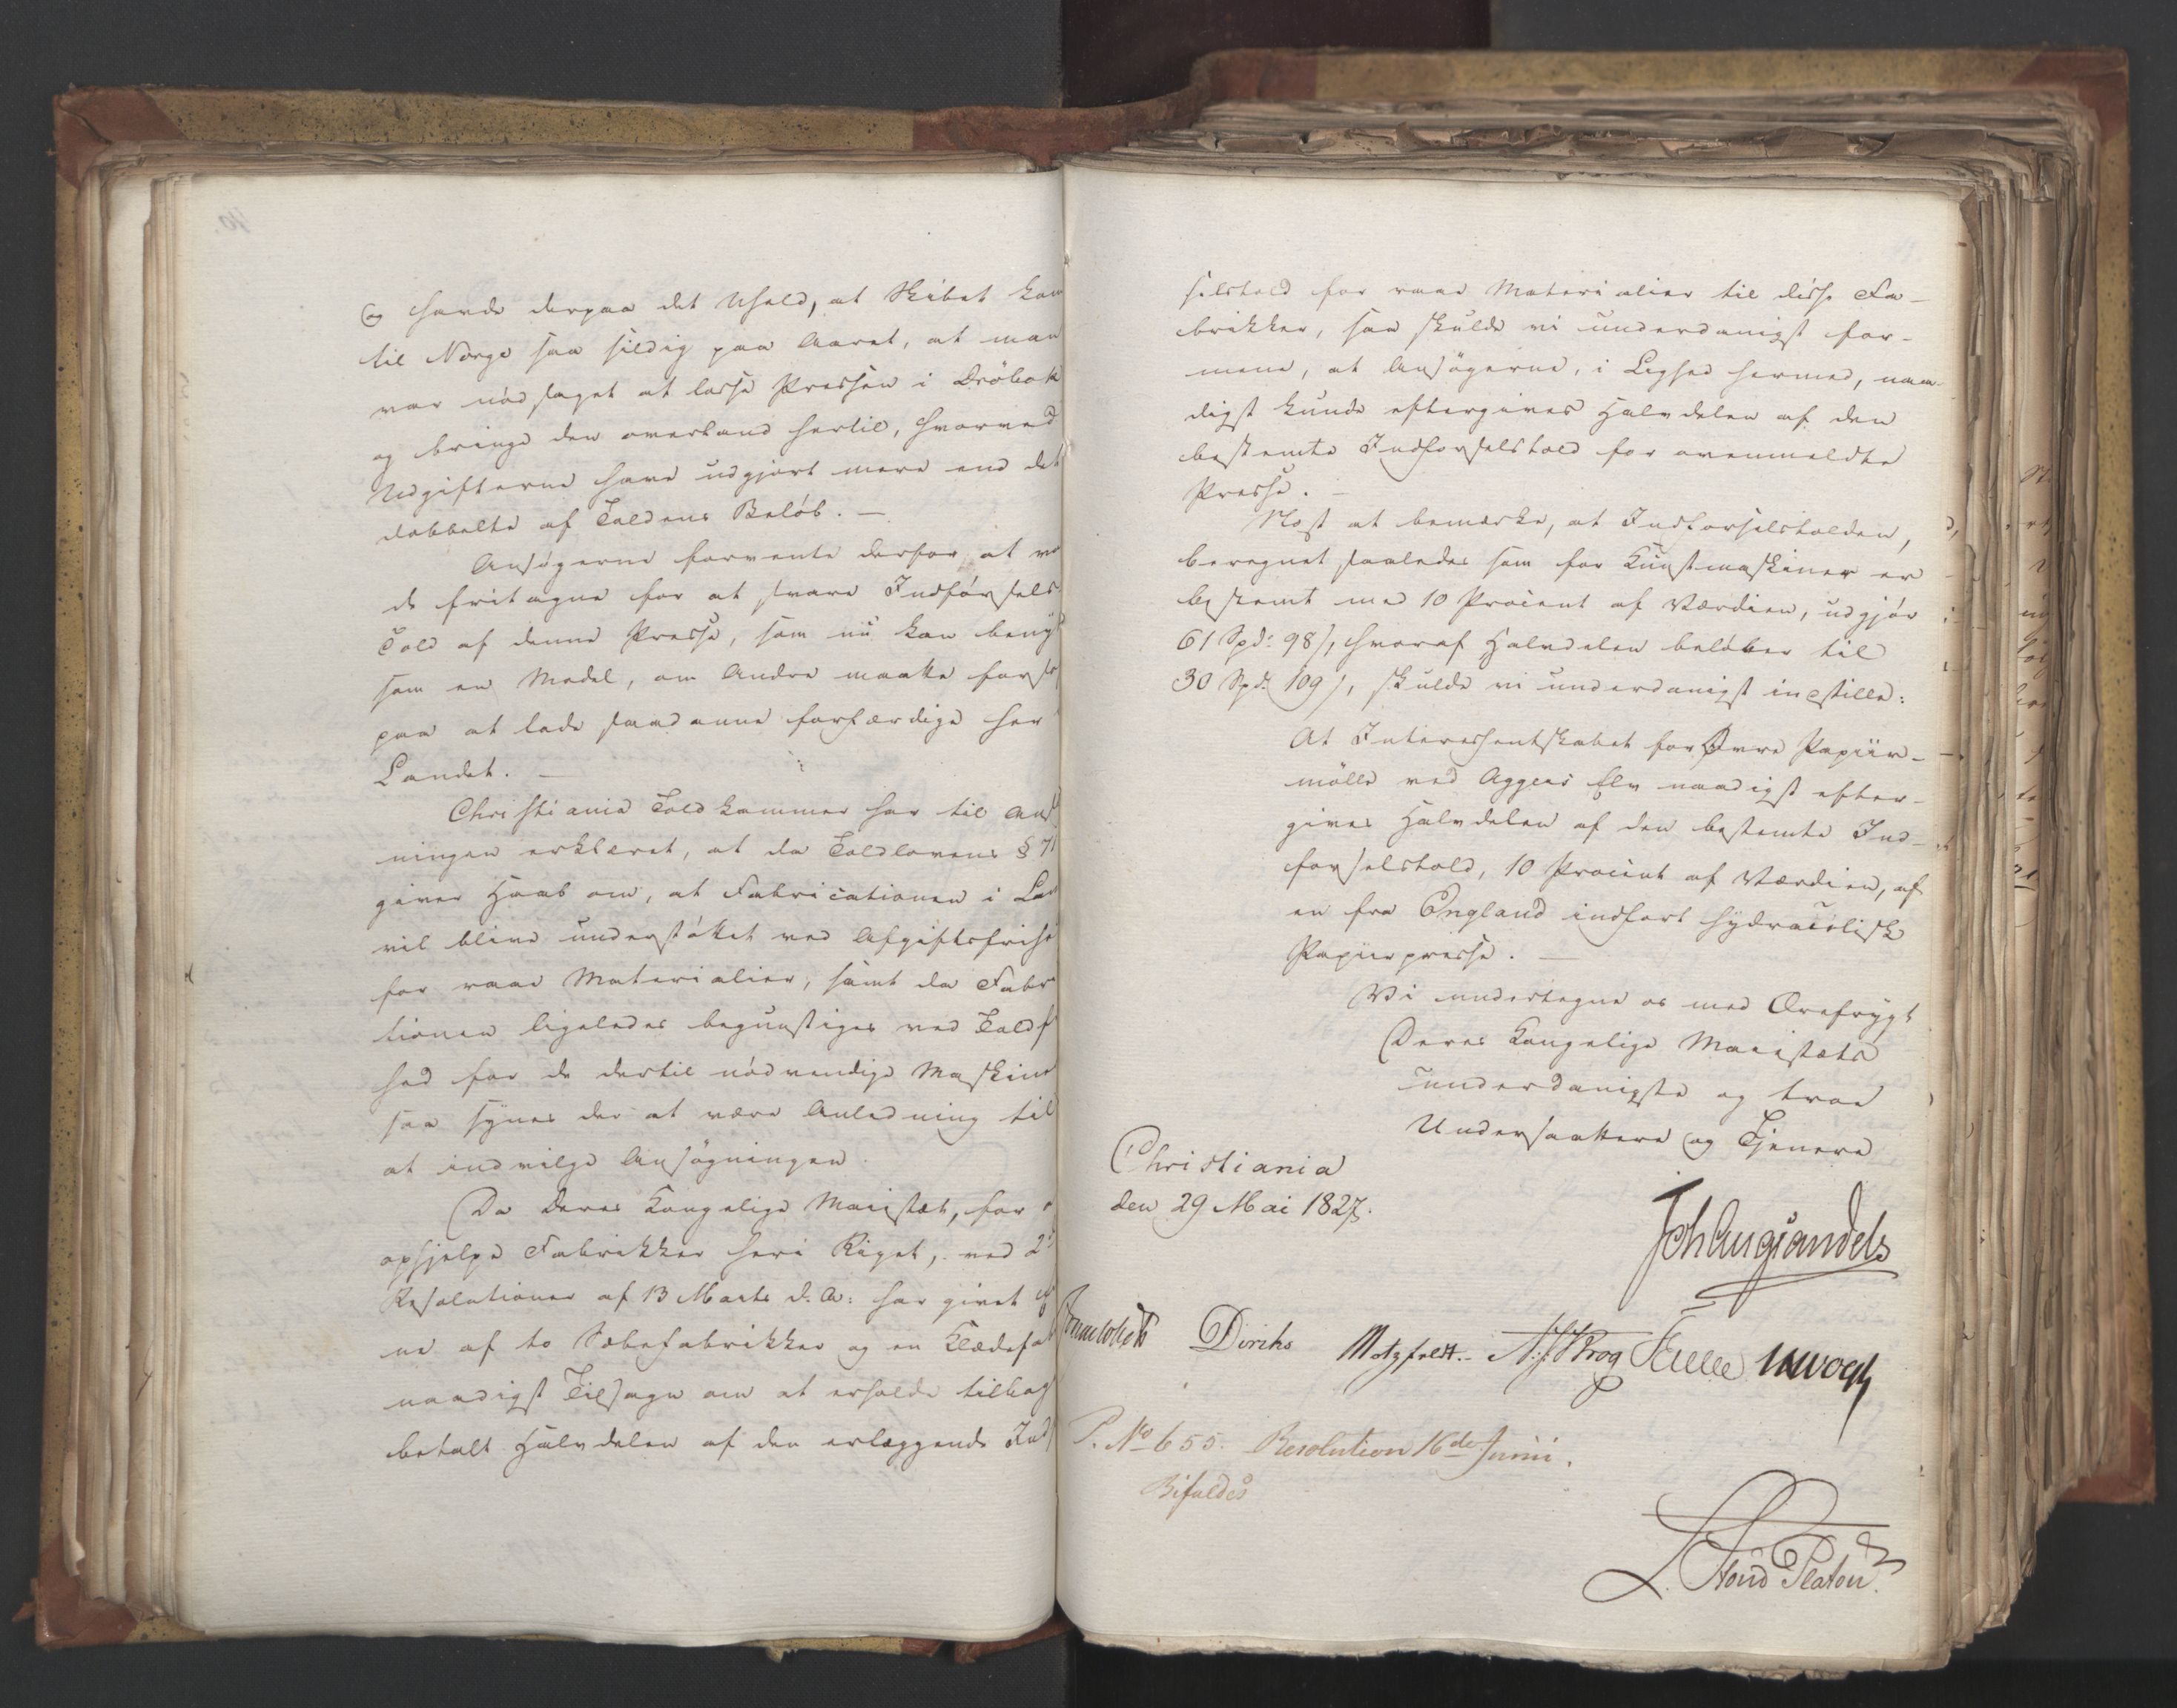 og havde derpaa det Uheld, at Skibet kom
til Norge saa sildig paa Aaret, at man
var nødsaget at losse Pressen i Dröbak
og bringe den overland hertil, hvorved
Udgifterne have udgjort mere end det
dobbelte af Toldens Beløb. —
Ansøgerne forvente derfor at vor
de fritagne for at svare Indførsels-
Told af denne Presse, som nu kan beny
som en Model, om Andre maatte forsø
paa at lade saadanne forfærdige her
Landet. —
Christiania Toldkammer har til Ans
ningen erklæret, at da Toldlovens § 71
giver Haab om, at Fabricationen i Lan
vil blive understøttet ved Afgiftsfrihe
for raae Materialier, samt da Fabr
tionen ligeledes begunstiges ved Toldf
hed for de dertil nødvendige Maskine
saa synes der at være Anledning til
at indvilge Ansøgningen.
Da Deres Kongelige Majestæt, for
ophjelpe Fabrikker heri Riget, ved 2
Resolutioner af 13 Marts d. A: har givet
ne af to Sæbefabrikker og en Klædefa
naadigst Tilsagn om at erholde tilbag
betalt Halvdelen af den erlæggende Ind
selstold for raae Materialier til disse Fa-
brikker, saa skulde vi underdanigst for-
mene, at Ansøgerne, i Lighed hermed, naa-
digst kunde eftergives Halvdelen af den
bestemte Indførselstold for ovenmeldte
Presse. —
Næst at bemærke, at Indførselstolden,
beregnet saaledes som for Kunstmaskiner er
bestemt med 10 Procent af Værdien, udgjør
61 Spd: 98 ß, hvoraf Halvdelen beløber til
30 Spd: 109 ß, skulde vi underdanigst indstille:
At Interessentskabet for Øvre Papiir-
mølle ved Aggers Elv naadigst efter-
gives Halvdelen af den bestemte Ind-
førselstold, 10 Procent af Værdien, af
en fra England indført hydraulisk
Papiirpresse. —
Vi undertegne os med Ærefrygt
Deres Kongelige Majestæts
underdanigste og troe
Undersaattere og Tjenere
Christiania
den 29 Mai 1827.
Joh Aug Sandels
Diriks Motzfeldt.
P. No 655. Resolution 16de Junii.
Bifaldes